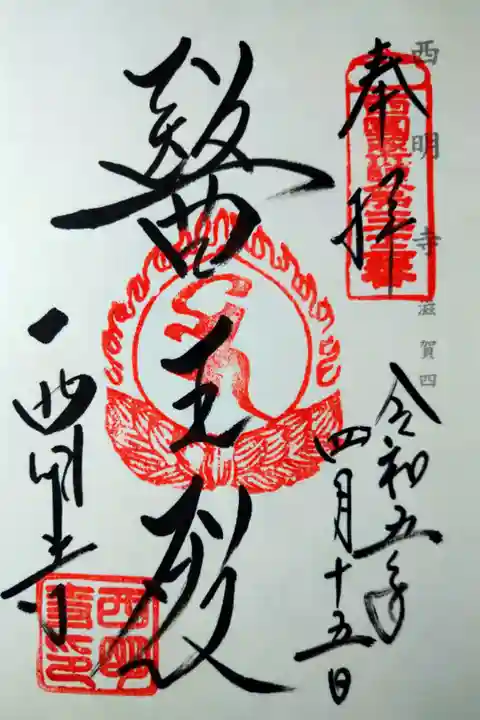 西明寺 滋賀四
奉拝
令和五年
四月十五日
醫王殿
西明寺
西明寺印